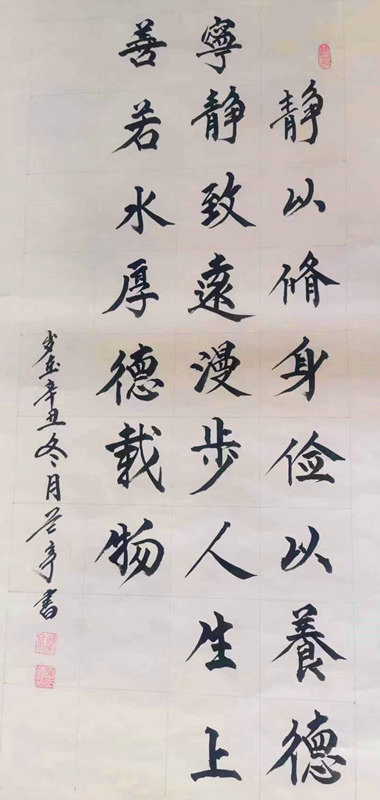 静以脩身俭以養德
寧静致遠漫步人生上
善若水厚德載物
岁在辛丑冬月 亭書